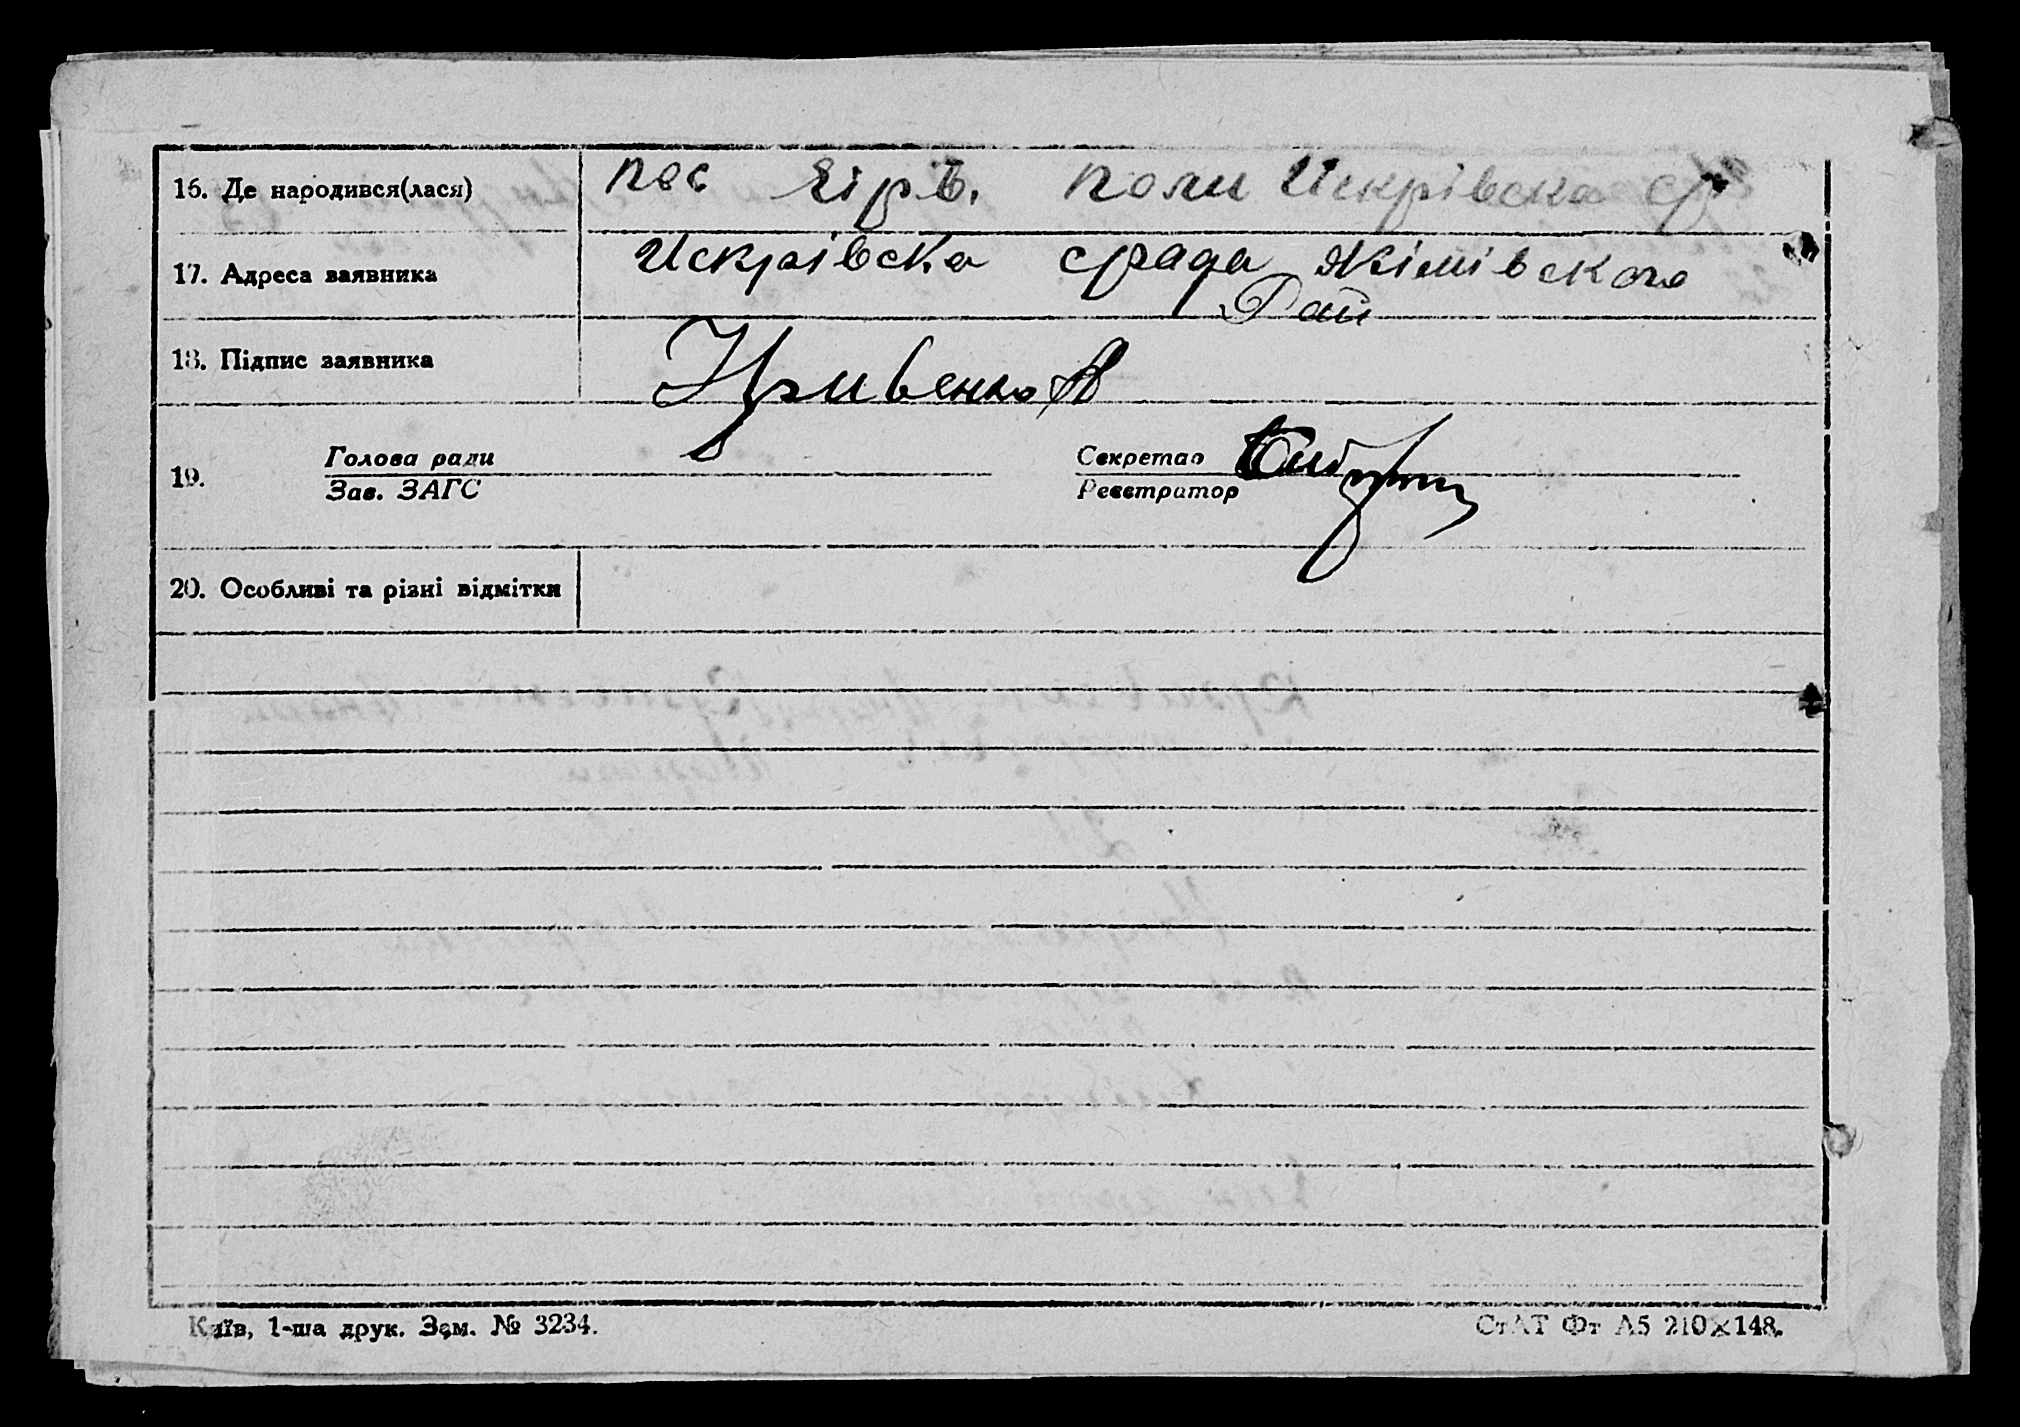 16. Де народився(лася) пос Кірв. поли Искрівска ср
17. Адреса заявника Искрівска срада Якімівского
Рай
18. Підпис заявника Кривенко А
19. Голова ради Секретар
Зав. ЗАГС Реєстратор
20. Особливі та різні відмітки
Київ, 1-ша друк. Зам. № 3234.
СтАТ Фт А5 210×148.